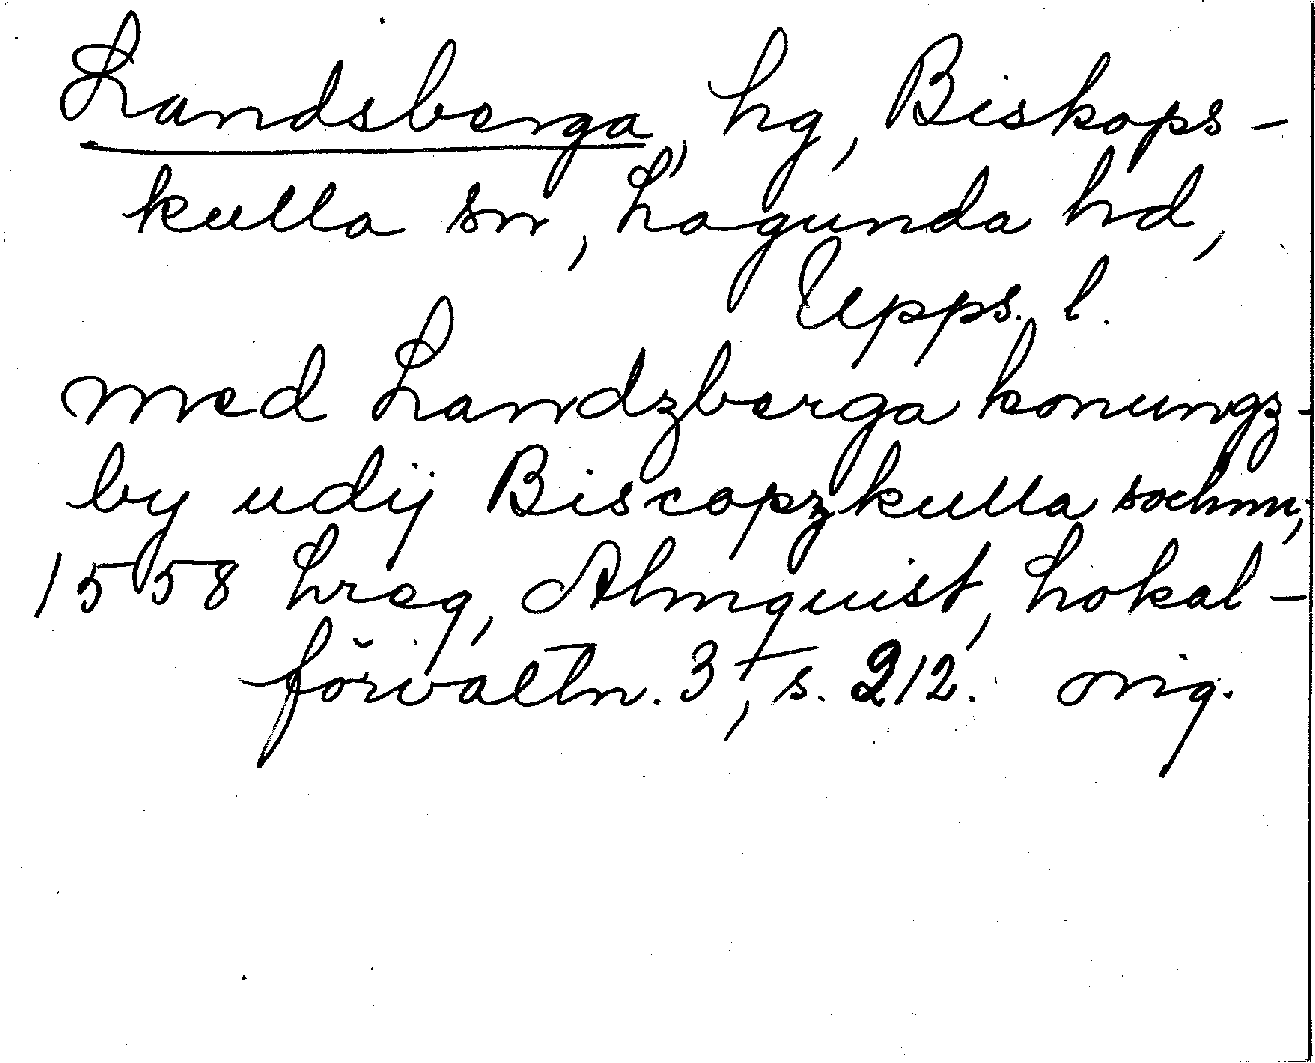 Landsberga, hg, Biskops-
kulla sn, Lagunda hd,
Upps. l.
med Landzberga konungz-
by udij Biscopzkulla sochnn,
1558 hreg, Almquist, Lokal-
förvaltn. 3, s. 212. orig.